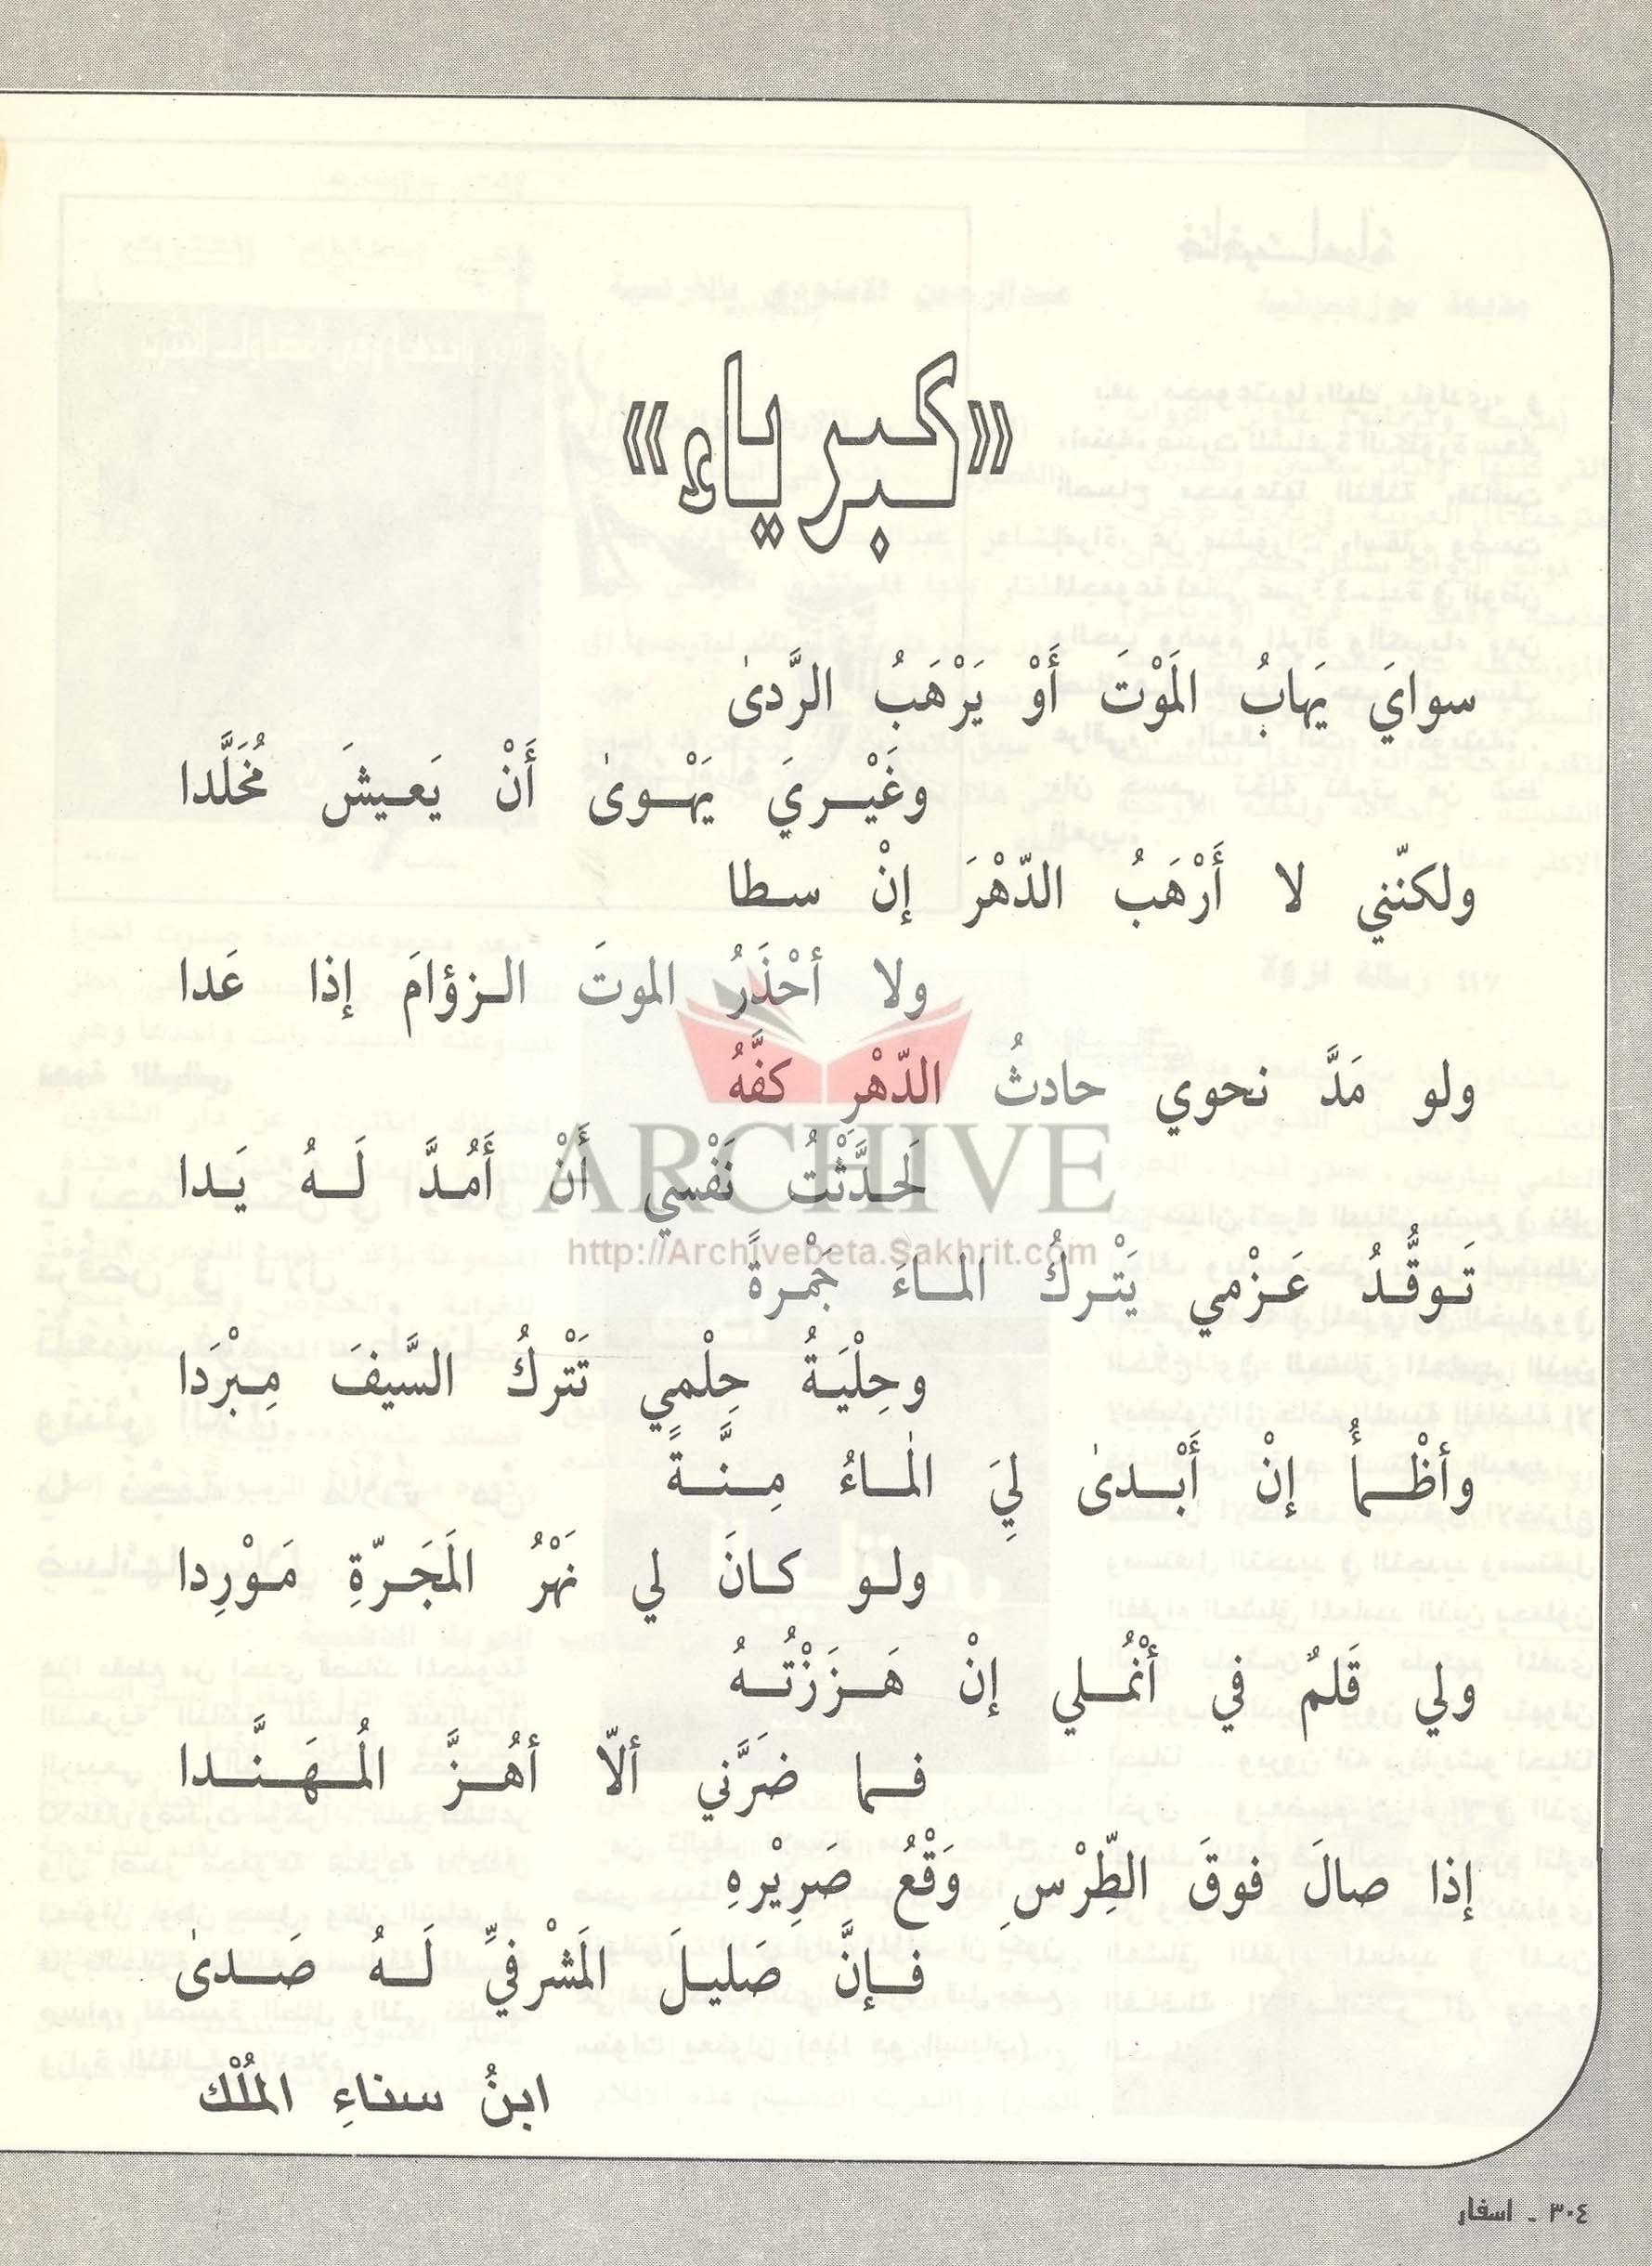 «كبرياء»
سوايَ يَهابُ المَوْتَ أَوْ يَرْهَبُ الرَّدىٰ
وغَيْريَ يَهْوىٰ أَنْ يَعيشَ مُخَلَّدا
ولكنّني لا أَرْهَبُ الدّهْرَ إنْ سطا
ولا أحْذَرُ الموتَ الزؤامَ إذا عَدا
ولو مَدَّ نحوي حادثُ الدّهْرِ كفَّهُ
لَحَدَّثْتُ نَفْسي أَنْ أَمُدَّ لَهُ يَدا
تَوقُّدُ عَزْمي يَتْركُ الماءَ جَمْرةً
وحِلْيَةُ حِلْمي تَتْركُ السَّيفَ مِبْرَدا
وأظْمأُ إنْ أَبْدىٰ لِيَ الماءُ مِنَّةً
ولو كانَ لي نَهْرُ المَجَرّةِ مَوْرِدا
ولي قَلمٌ في أنْمُلي إنْ هَزَزْتُهُ
فما ضرَّني ألاّ أهُزَّ المُهَنَّدا
إذا صالَ فوقَ الطِّرْسِ وَقْعُ صَرِيْرهِ
فإنَّ صَليلَ المَشْرفيِّ لَهُ صَدىٰ
ابنُ سناءِ المُلْك
ARCHIVE
http://Archivebeta.Sakhrit.com
٣٠٤ ـ اسفار